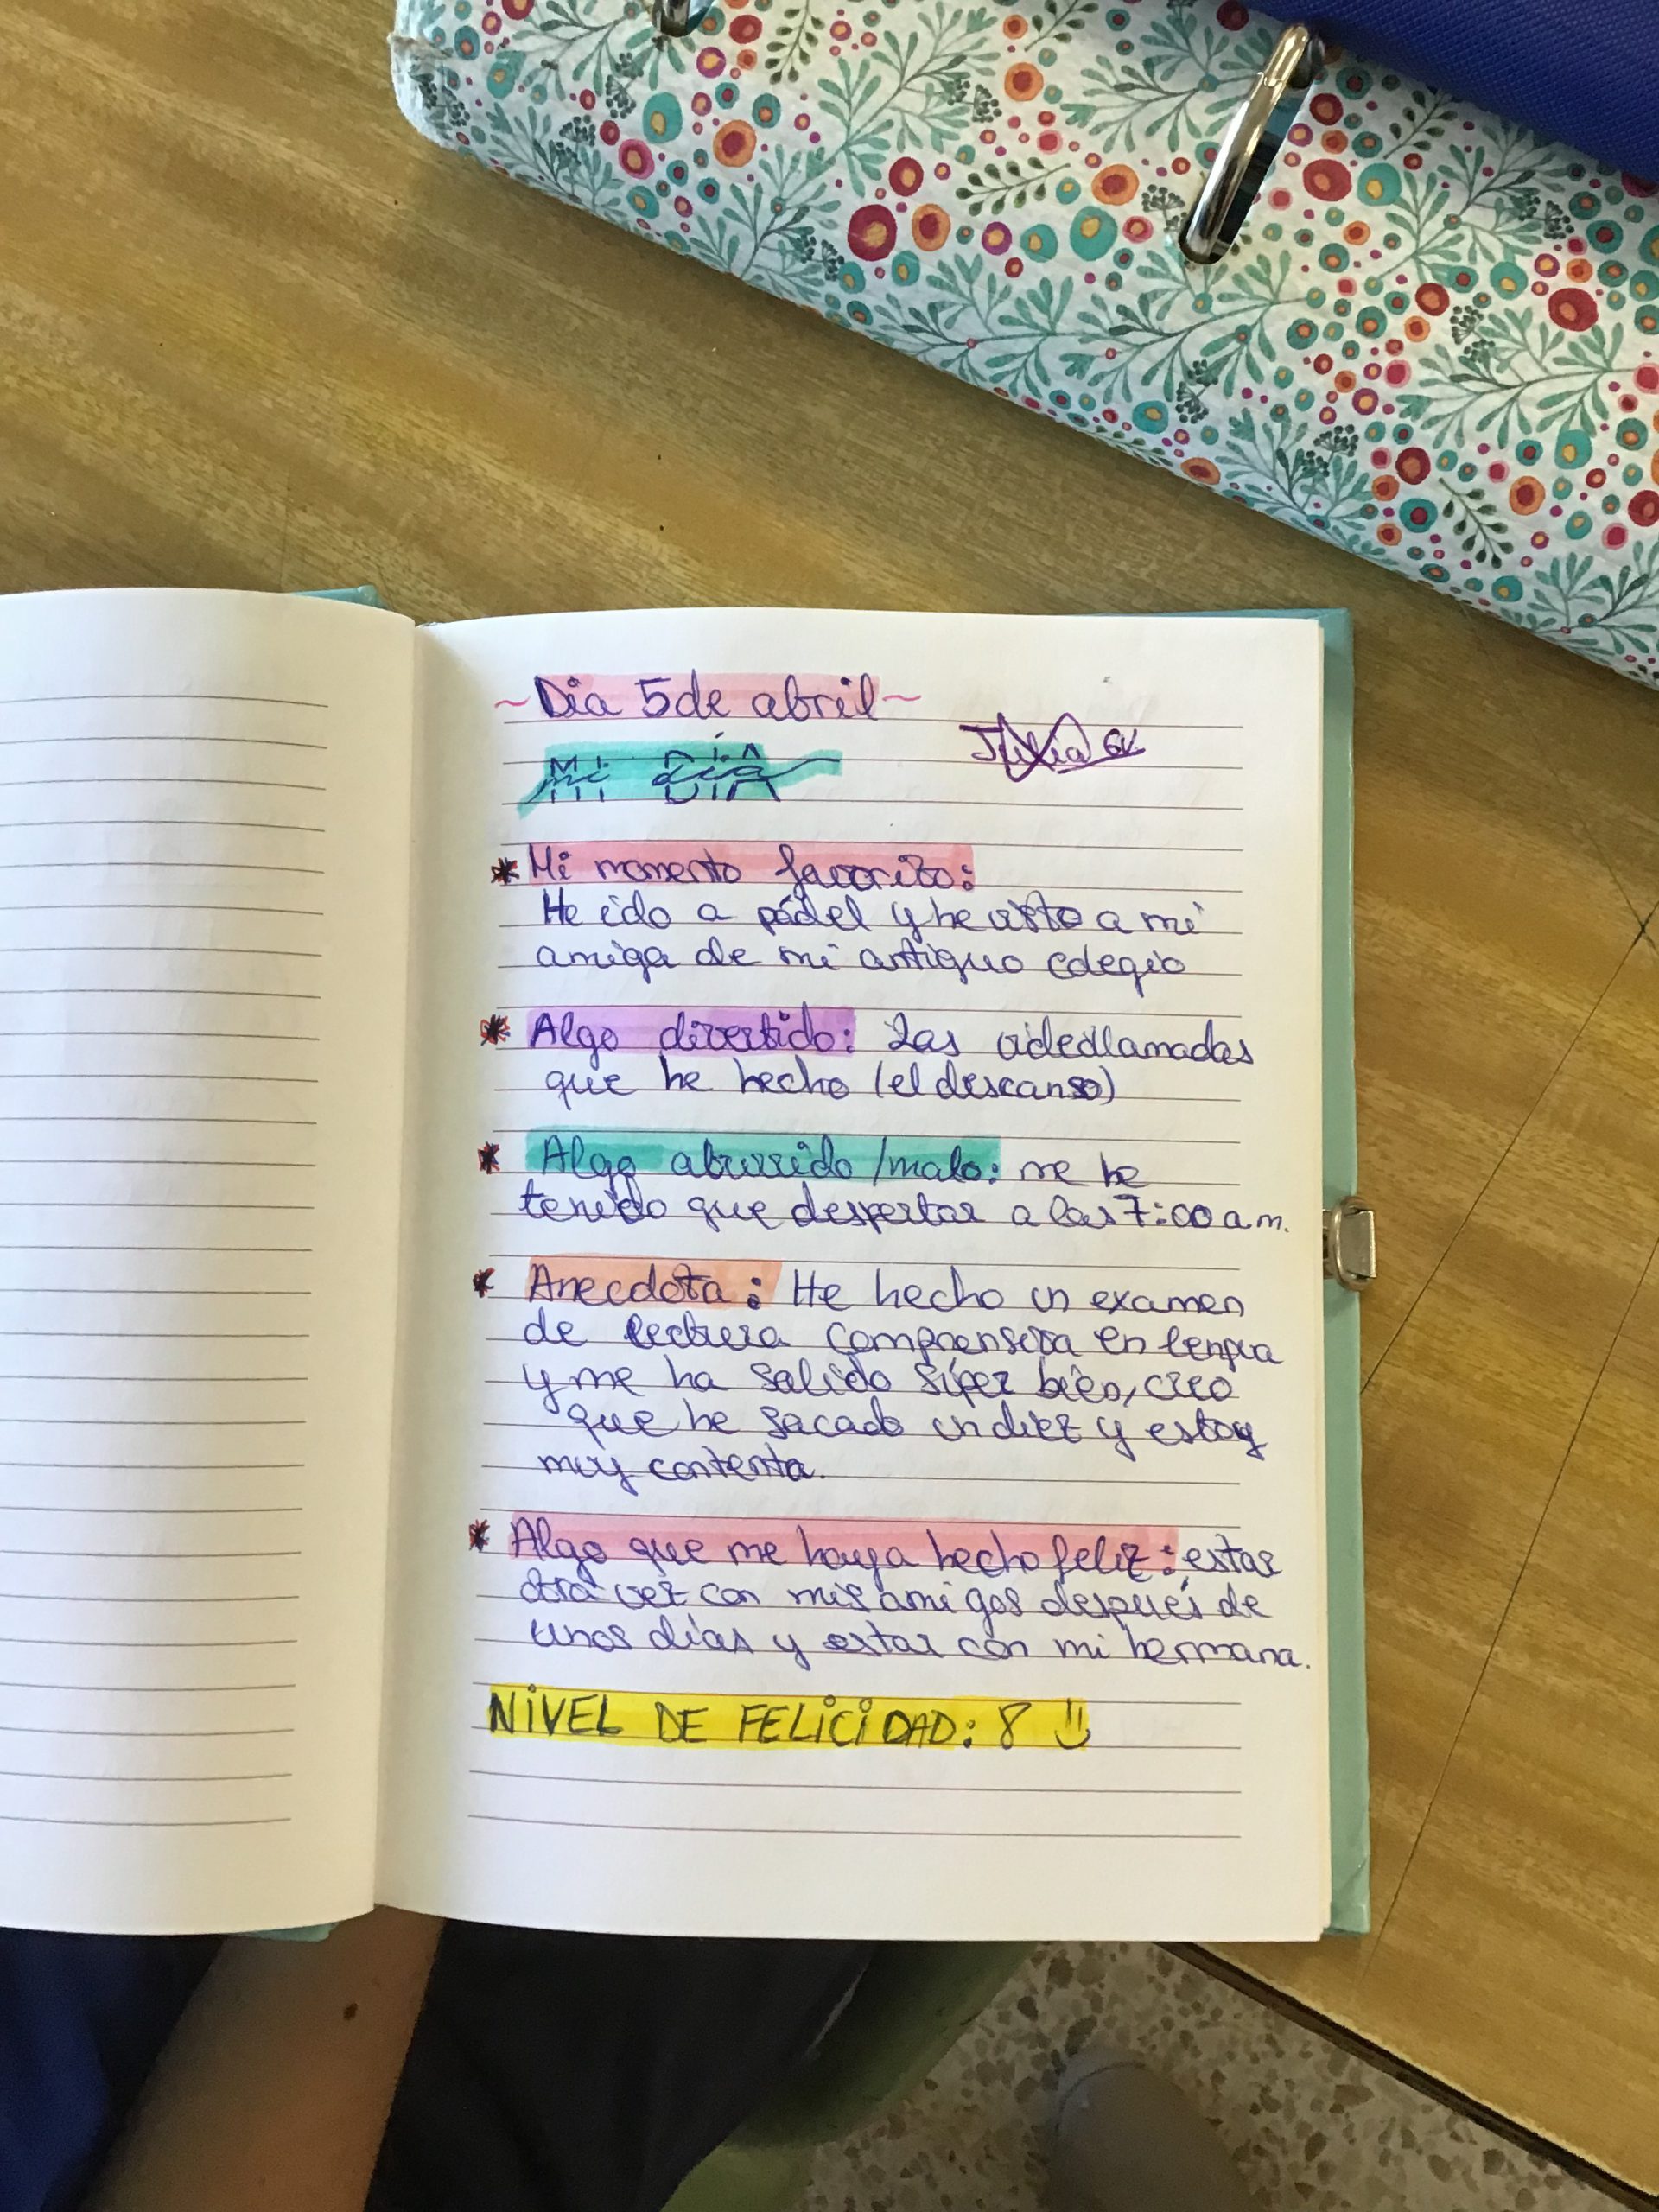 ~Dia 5 de abril~
MI DÍA
mi día
Julia
* Mi momento favorito:
He ido a pádel y he visto a mi
amiga de mi antiguo colegio
* Algo divertido: Las videollamadas
que he hecho (el descanso)
* Algo aburrido/malo: me he
tenido que despertar a las 7:00 a.m.
* Anecdota: He hecho un examen
de lectura comprensiva en lengua
y me ha salido súper bien, creo
que he sacado un diez y estoy
muy contenta.
* Algo que me haya hecho feliz: estar
otra vez con mis amigos después de
unos días y estar con mi hermana.
NIVEL DE FELICIDAD: 8